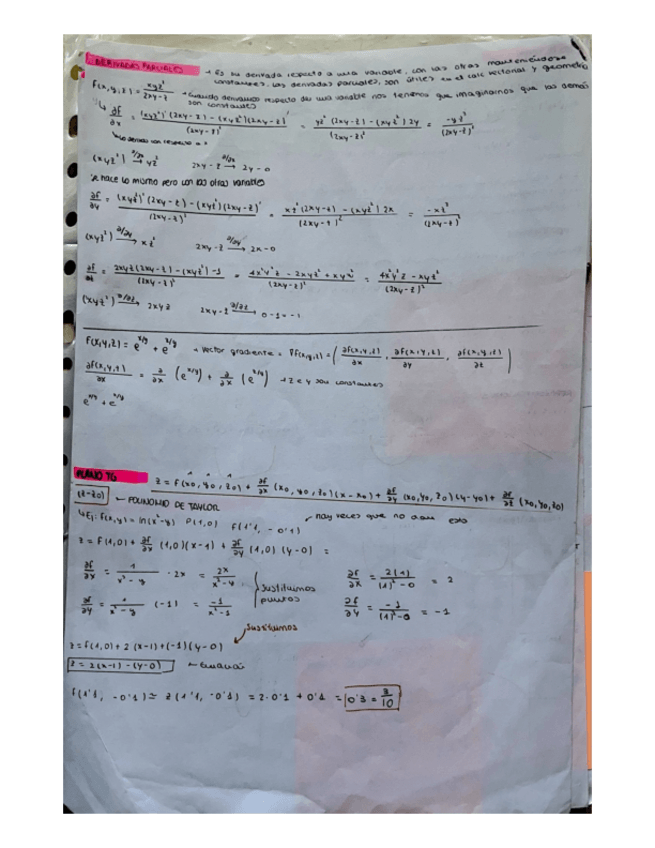 DERIVADAS PARCIALES → Es su derivada respecto a una variable, con las otras manteniéndose
constantes. Las derivadas parciales, son útiles en el calc vectorial y geometría
F(x,y,z) = xyz²/2xy-z → Cuando derivamos respecto de una variable nos tenemos que imaginarnos que las demás
son constantes
↳ ∂f/∂x = (xyz²)'(2xy-z) - (xyz²)(2xy-z)'/(2xy-z)² = yz²(2xy-z) - (xyz²)2y/(2xy-z)² = -yz³/(2xy-z)²
↳ Lo derivas con respecto a x
(xyz²) ∂/∂x→ yz² 2xy-z ∂/∂x→ 2y-0
Se hace lo mismo pero con las otras variables
∂f/∂y = (xyz²)'(2xy-z) - (xyz²)(2xy-z)'/(2xy-z)² = xz²(2xy-z) - (xyz²)2x/(2xy-z)² = -xz³/(2xy-z)²
(xyz²) ∂/∂y→ xz² 2xy-z ∂/∂y→ 2x-0
∂f/∂z = 2xyz(2xy-z) - (xyz²)-1/(2xy-z)² = 4x²y²z - 2xyz² + xyz²/(2xy-z)² = 4x²y²z - xyz²/(2xy-z)²
(xyz²) ∂/∂z→ 2xyz 2xy-z ∂/∂z→ 0-1=-1
F(x,y,z) = e^x/y + e^z/y → Vector gradiente = ∇f(x,y,z) = (∂f(x,y,z)/∂x, ∂f(x,y,z)/∂y, ∂f(x,y,z)/∂z)
∂f(x,y,z)/∂x = ∂/∂x (e^x/y) + ∂/∂x (e^z/y) → z e y son constantes
PLANO TG
z = f(x0, y0, z0) + ∂f/∂x (x0, y0, z0)(x-x0) + ∂f/∂y (x0, y0, z0)(y-y0) + ∂f/∂z (x0, y0, z0)
(z-z0) ← POLINOMIO DE TAYLOR
↳ Ej: f(x,y) = ln(x²-y) P(1,0) f(1'1, -0'1) → hay veces que no dan esto
z = f(1,0) + ∂f/∂x (1,0)(x-1) + ∂f/∂y (1,0)(y-0) =
∂f/∂x = 1/x²-y · 2x = 2x/x²-y Sustituimos puntos ∂f/∂x = 2(1)/(1)²-0 = 2
∂f/∂y = 1/x²-y (-1) = -1/x²-1 ∂f/∂y = -1/(1)²-0 = -1
Sustituimos
z = f(1,0) + 2(x-1) + (-1)(y-0)
z = 2(x-1) - (y-0)
f(1'1, -0'1) ≃ z(1'1, -0'1) = 2·0'1 + 0'1 = 0'3 = 3/10